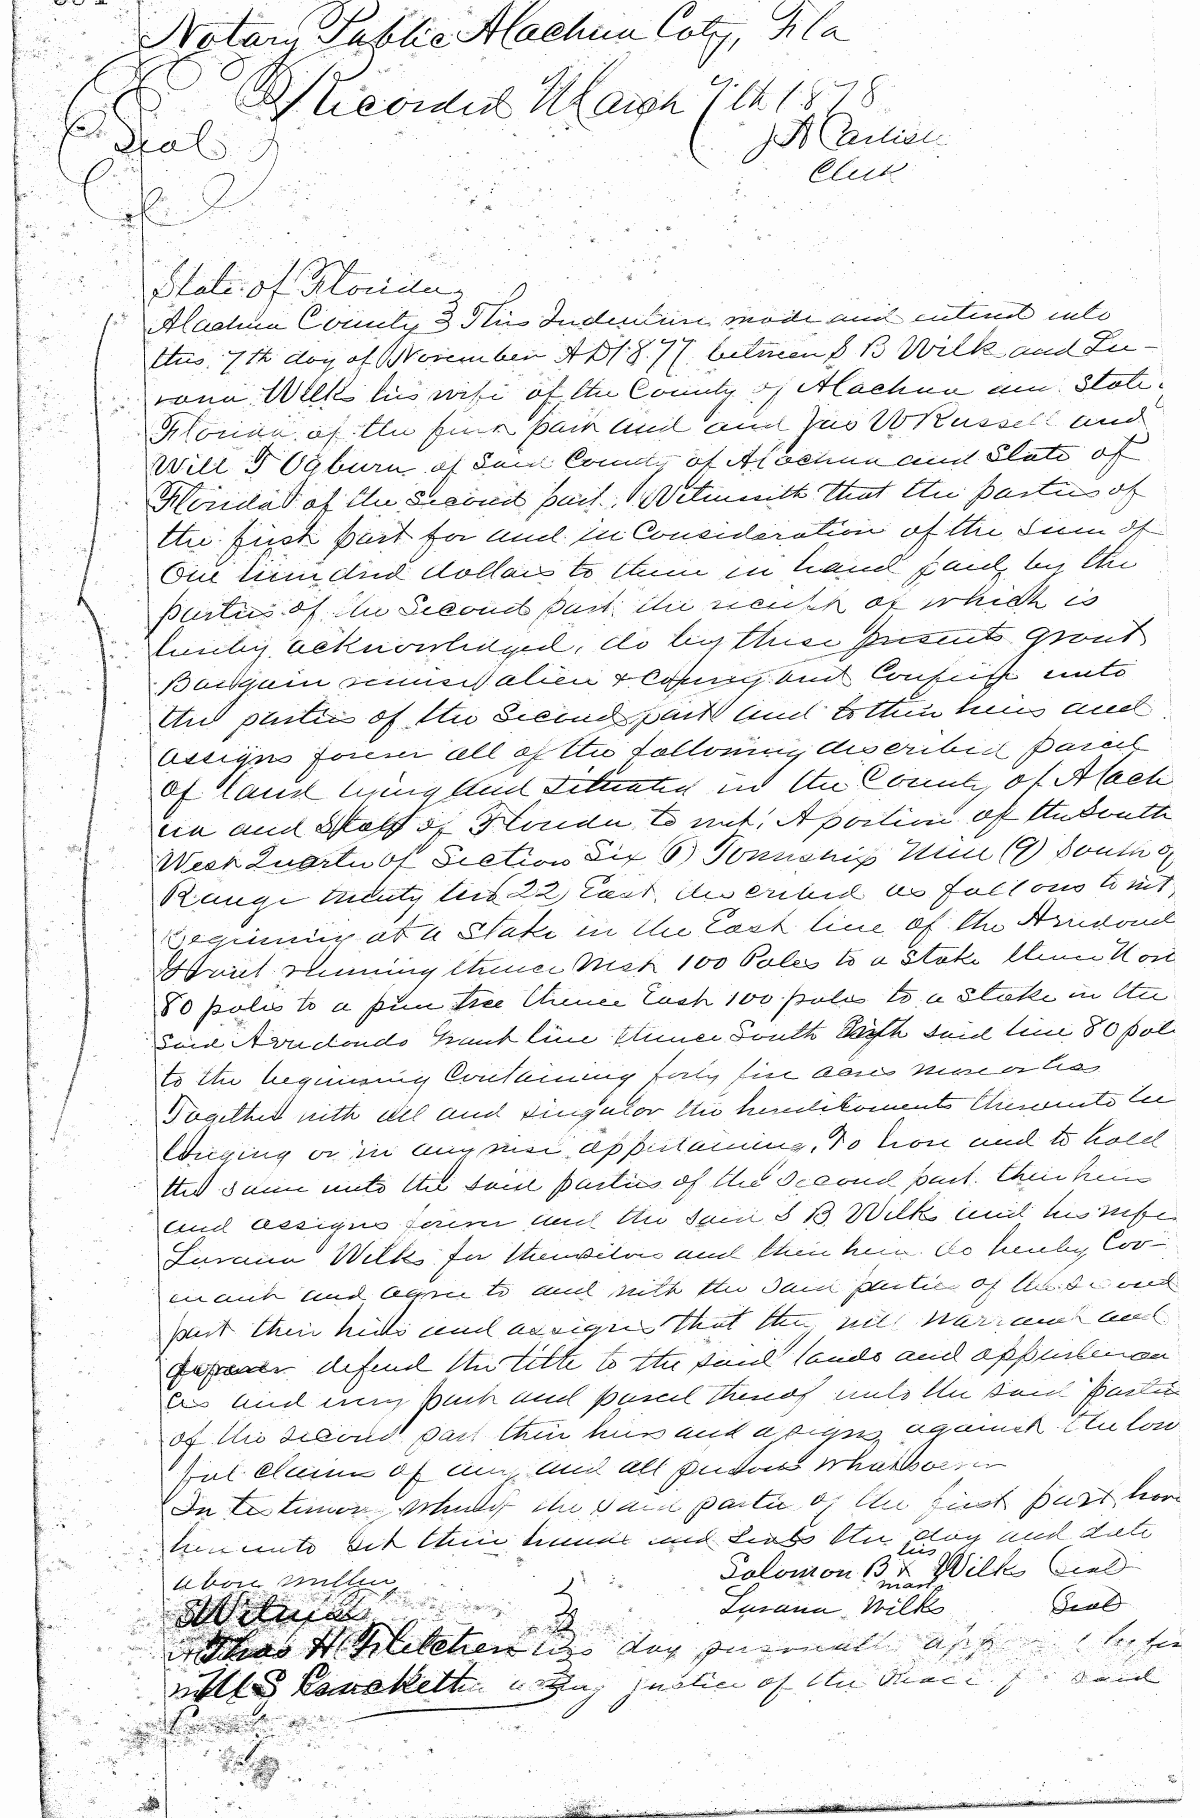 Notary Public Alachua Coty, Fla
Recorded March 7th 1878
Seal
J A Carlisle
Clerk
State of Florida
Alachua County } This Indenture made and entered into
this 7th day of November AD 1877 between S B Wilk and Lu-
rana Wilks his wife of the County of Alachua and State
Florida of the first part and and Jas W Russell and
Will T Ogburn of Said County of Alachua and State of
Florida of the Second part. Witnesseth that the parties of
the first part for and in Consideration of the Sum of
One hundred dollars to them in hand paid by the
parties of the Second part the receipt of which is
hereby acknowledged, do by these presents grant
Bargain remise alien & convey and Confirm unto
the parties of the Second part and to their heirs and
assigns forever all of the following described parcel
of land lying and Situated in the County of Alach
ua and State of Florida to wit: A portion of the South
West Quarter of Section Six (6) Township Nine (9) South of
Range twenty two (22) East described as follows to wit,
Beginning at a Stake in the East line of the Arredond
Grant running thence West 100 Poles to a Stake thence Nort
80 poles to a pine tree thence East 100 poles to a Stake in the
said Arredondo Grant line thence South with said line 80 pol
to the beginning Containing forty five acres more or less
Together with all and singular the hereditaments thereunto be
longing or in any wise appertaining. To have and to hold
the same unto the said parties of the Second part their heirs
and assigns forever and the said S B Wilks and his wife
Lurana Wilks for themselves and their heirs do hereby Cov-
enant and agree to and with the said parties of the second
part their heirs and assigns that they will warrant and
defend the title to the said lands and appurtenan
ces and every part and parcel thereof unto the said parties
of the second part their heirs and assigns against the law
ful claims of any and all persons whatsoever
In testimony whereof the said parties of the first part have
hereunto set their hands and seals the day and date
above written
his
Solomon B x Wilks Seal
mark
Lurana Wilks Seal
Witness
Thos H Fletcher this day personally before
M S acting justice of the Peace for said